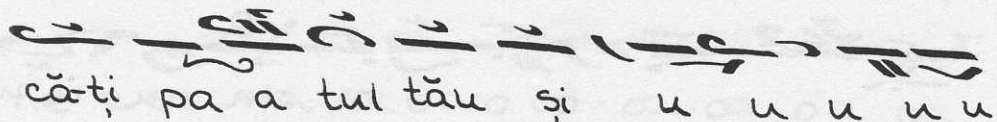 că-ți pa a tul tău și u u u u u